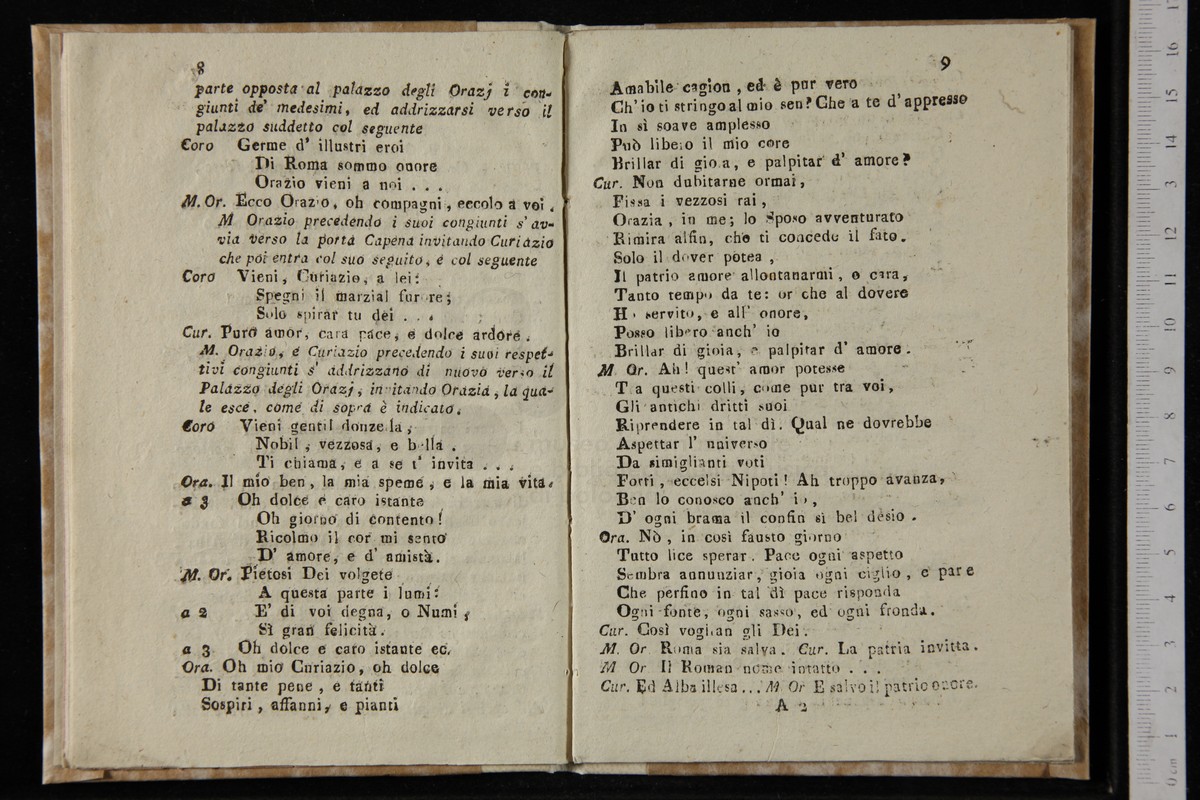 8
parte opposta al palazzo degli Orazj i con-
giunti de' medesimi, ed addrizzarsi verso il
palazzo suddetto col seguente
Coro Germe d' illustri eroi
Di Roma sommo onore
Orazio vieni a noi . . .
M. Or. Ecco Orazio, oh compagni, eccolo a voi.
M Orazio precedendo i suoi congiunti s' av-
via verso la porta Capena invitando Curiazio
che poi entra col suo seguito, e col seguente
Coro Vieni, Curiazio, a lei:
Spegni il marzial furore;
Solo spirar tu dei . . .
Cur. Puro amor, cara pace, e dolce ardore.
M. Orazio, e Curiazio precedendo i suoi respet-
tivi congiunti s' addrizzano di nuovo verso il
Palazzo degli Orazj, invitando Orazia, la qua-
le esce, come di sopra è indicato.
Coro Vieni gentil donzella,
Nobil, vezzosa, e bella .
Ti chiama, e a se t' invita . . .
Ora. Il mio ben, la mia speme, e la mia vita.
a 3 Oh dolce e caro istante
Oh giorno di contento!
Ricolmo il cor mi sento
D' amore, e d' amistà.
M. Or. Pietosi Dei volgete
A questa parte i lumi:
a 2 E' di voi degna, o Numi,
Sì gran felicità.
a 3 Oh dolce e caro istante ec.
Ora. Oh mio Curiazio, oh dolce
Di tante pene, e tanti
Sospiri, affanni, e pianti
9
Amabile cagion, ed è pur vero
Ch' io ti stringo al mio sen? Che a te d' appresso
In sì soave amplesso
Può libero il mio core
Brillar di gioia, e palpitar d' amore?
Cur. Non dubitarne ormai,
Fissa i vezzosi rai,
Orazia, in me; lo Sposo avventurato
Rimira alfin, che ti concede il fato.
Solo il dover potea ,
Il patrio amore allontanarmi, o cara,
Tanto tempo da te: or che al dovere
Ho servito, e all' onore,
Posso libero anch' io
Brillar di gioia, e palpitar d' amore .
M Or. Ah! quest' amor potesse
Tra questi colli, come pur tra voi,
Gli antichi dritti suoi
Riprendere in tal dì. Qual ne dovrebbe
Aspettar l' universo
Da simiglianti voti
Forti, eccelsi Nipoti! Ah troppo avanza,
Ben lo conosco anch' io,
D' ogni brama il confin sì bel desio .
Ora. Nò, in così fausto giorno
Tutto lice sperar. Pace ogni aspetto
Sembra annunziar, gioia ogni ciglio, e pare
Che perfino in tal dì pace risponda
Ogni fonte, ogni sasso, ed ogni fronda.
Cur. Così voglian gli Dei.
M. Or Roma sia salva. Cur. La patria invitta.
M Or Il Roman nome intatto . . .
Cur. Ed Alba illesa... M Or E salvo il patrio onore.
A 2
0 cm 1 2 3 4 5 6 7 8 9 10 11 12 13 14 15 16 17